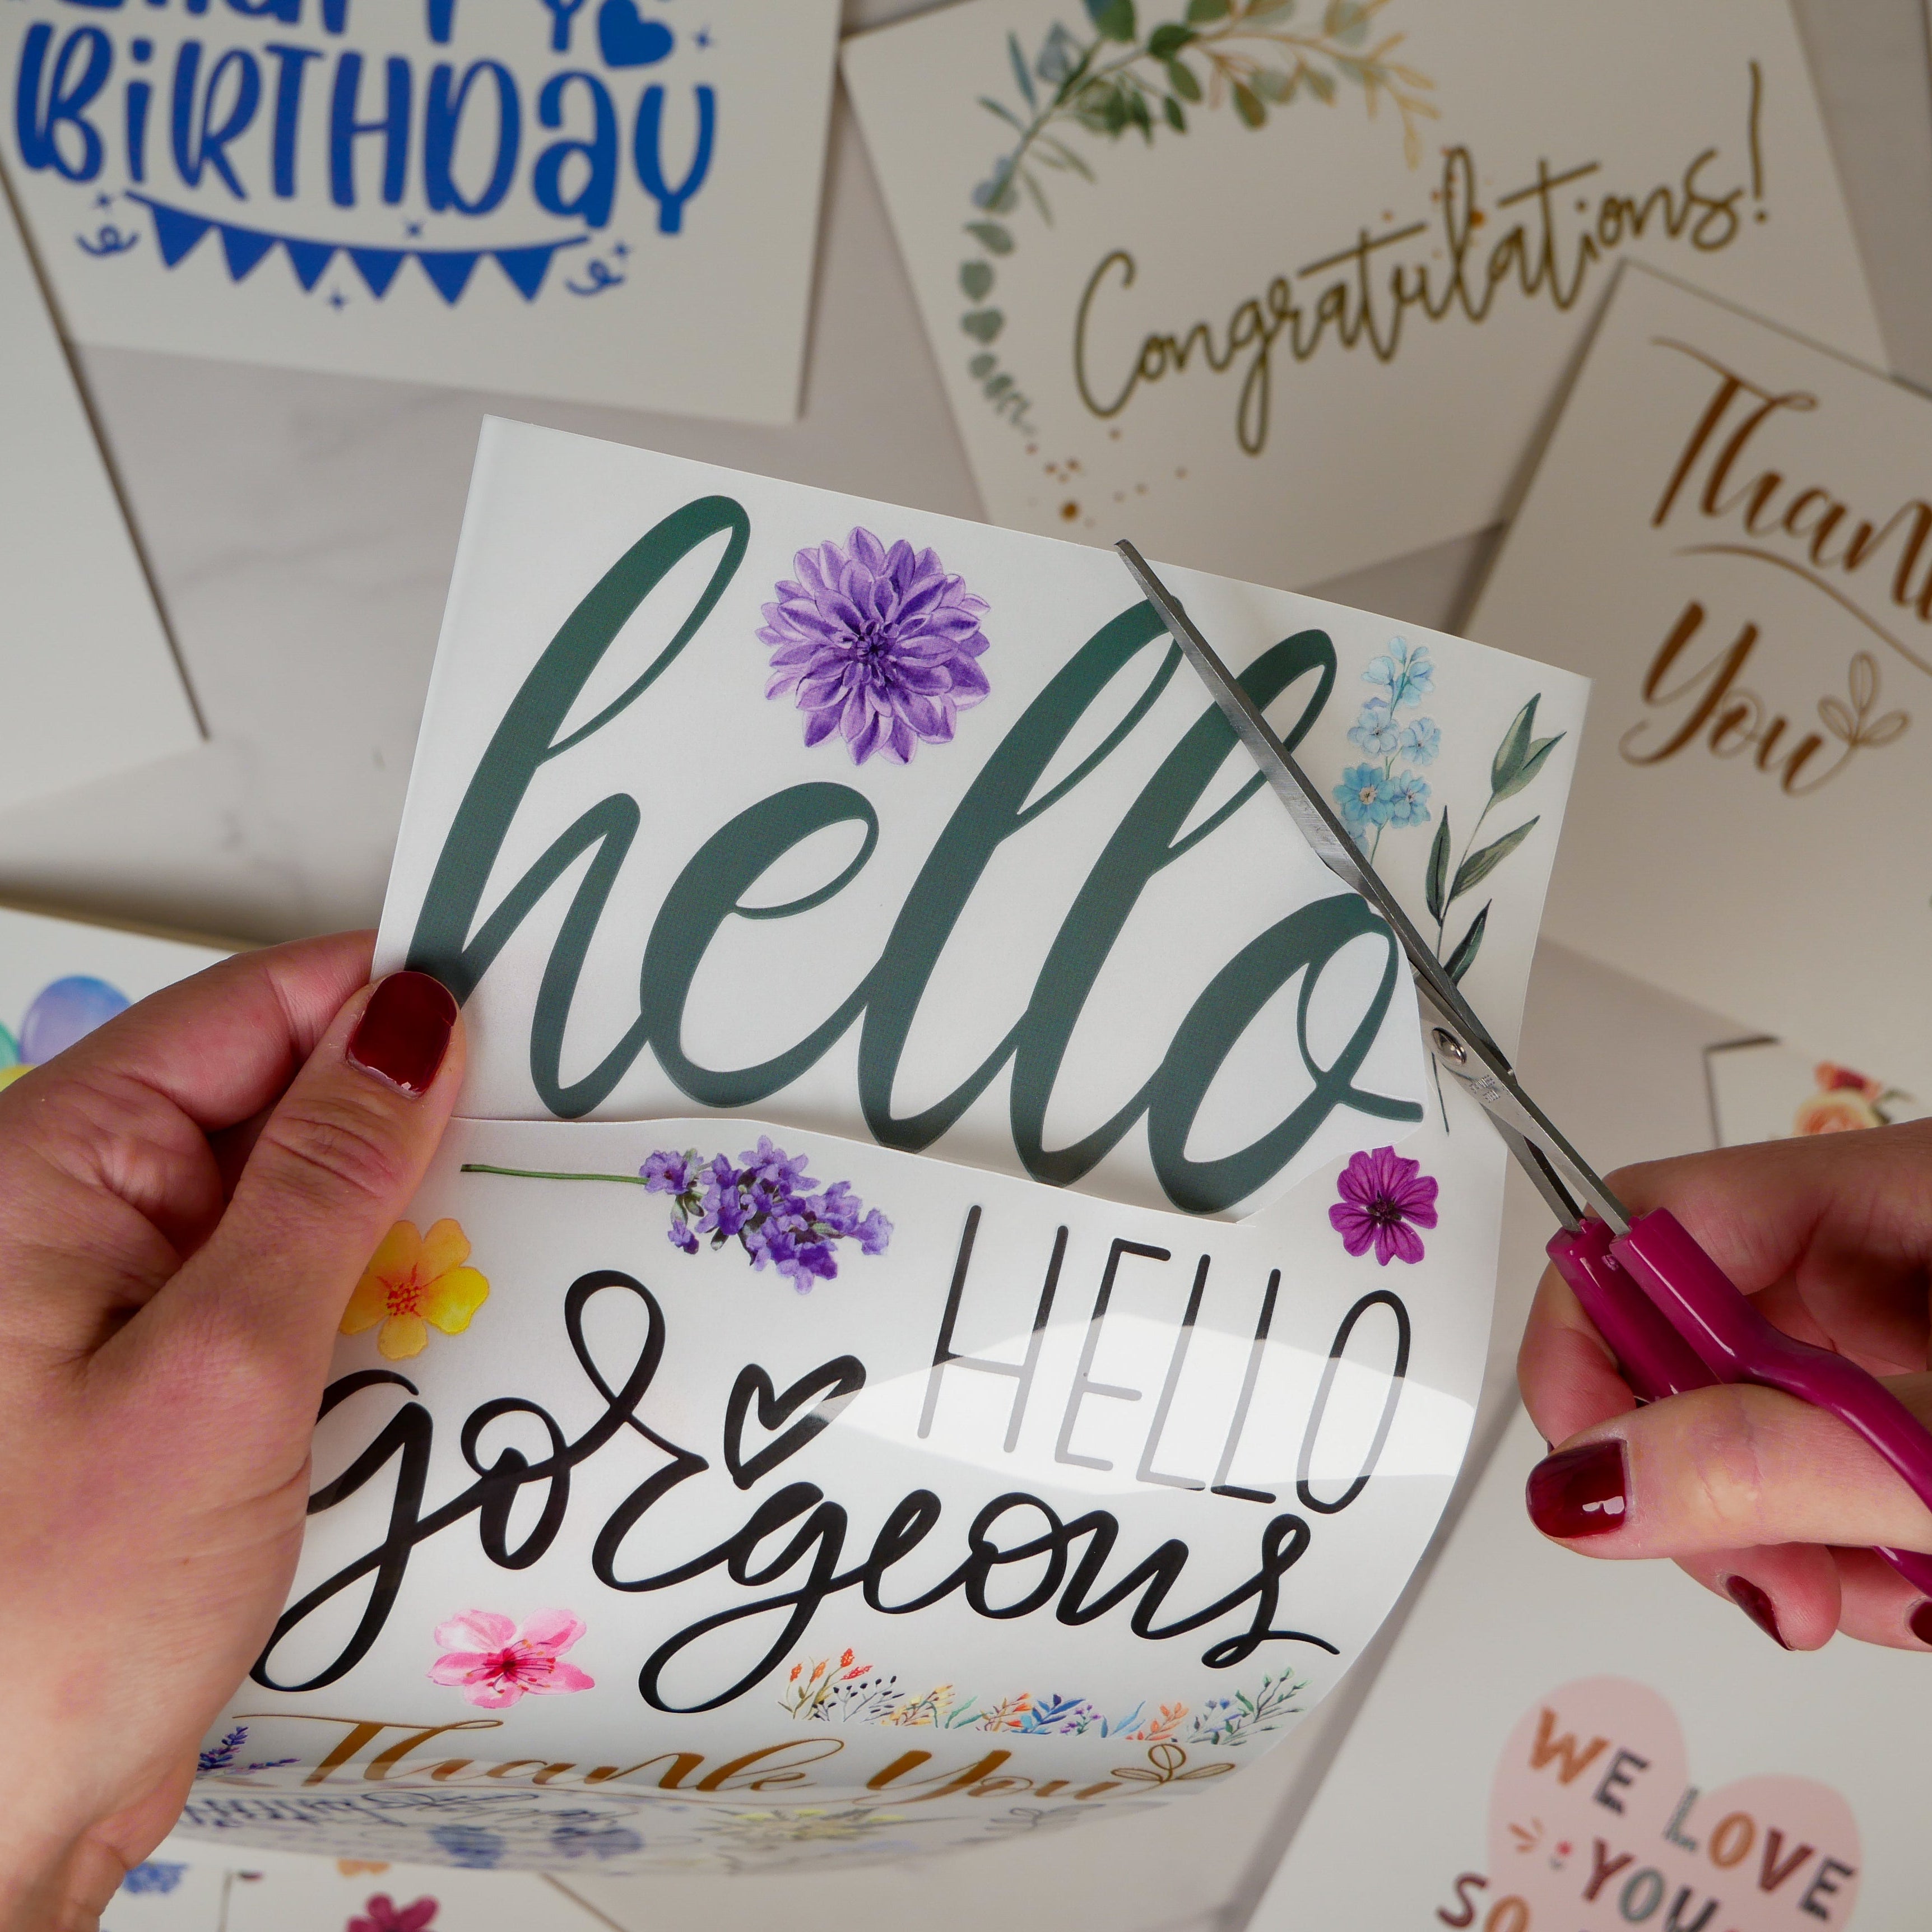 HAPPY
BiRTHDay
Congratulations!
Thank
You
hello
HELLO
gorgeous
Thank You
WE LOVE
YOU
SO